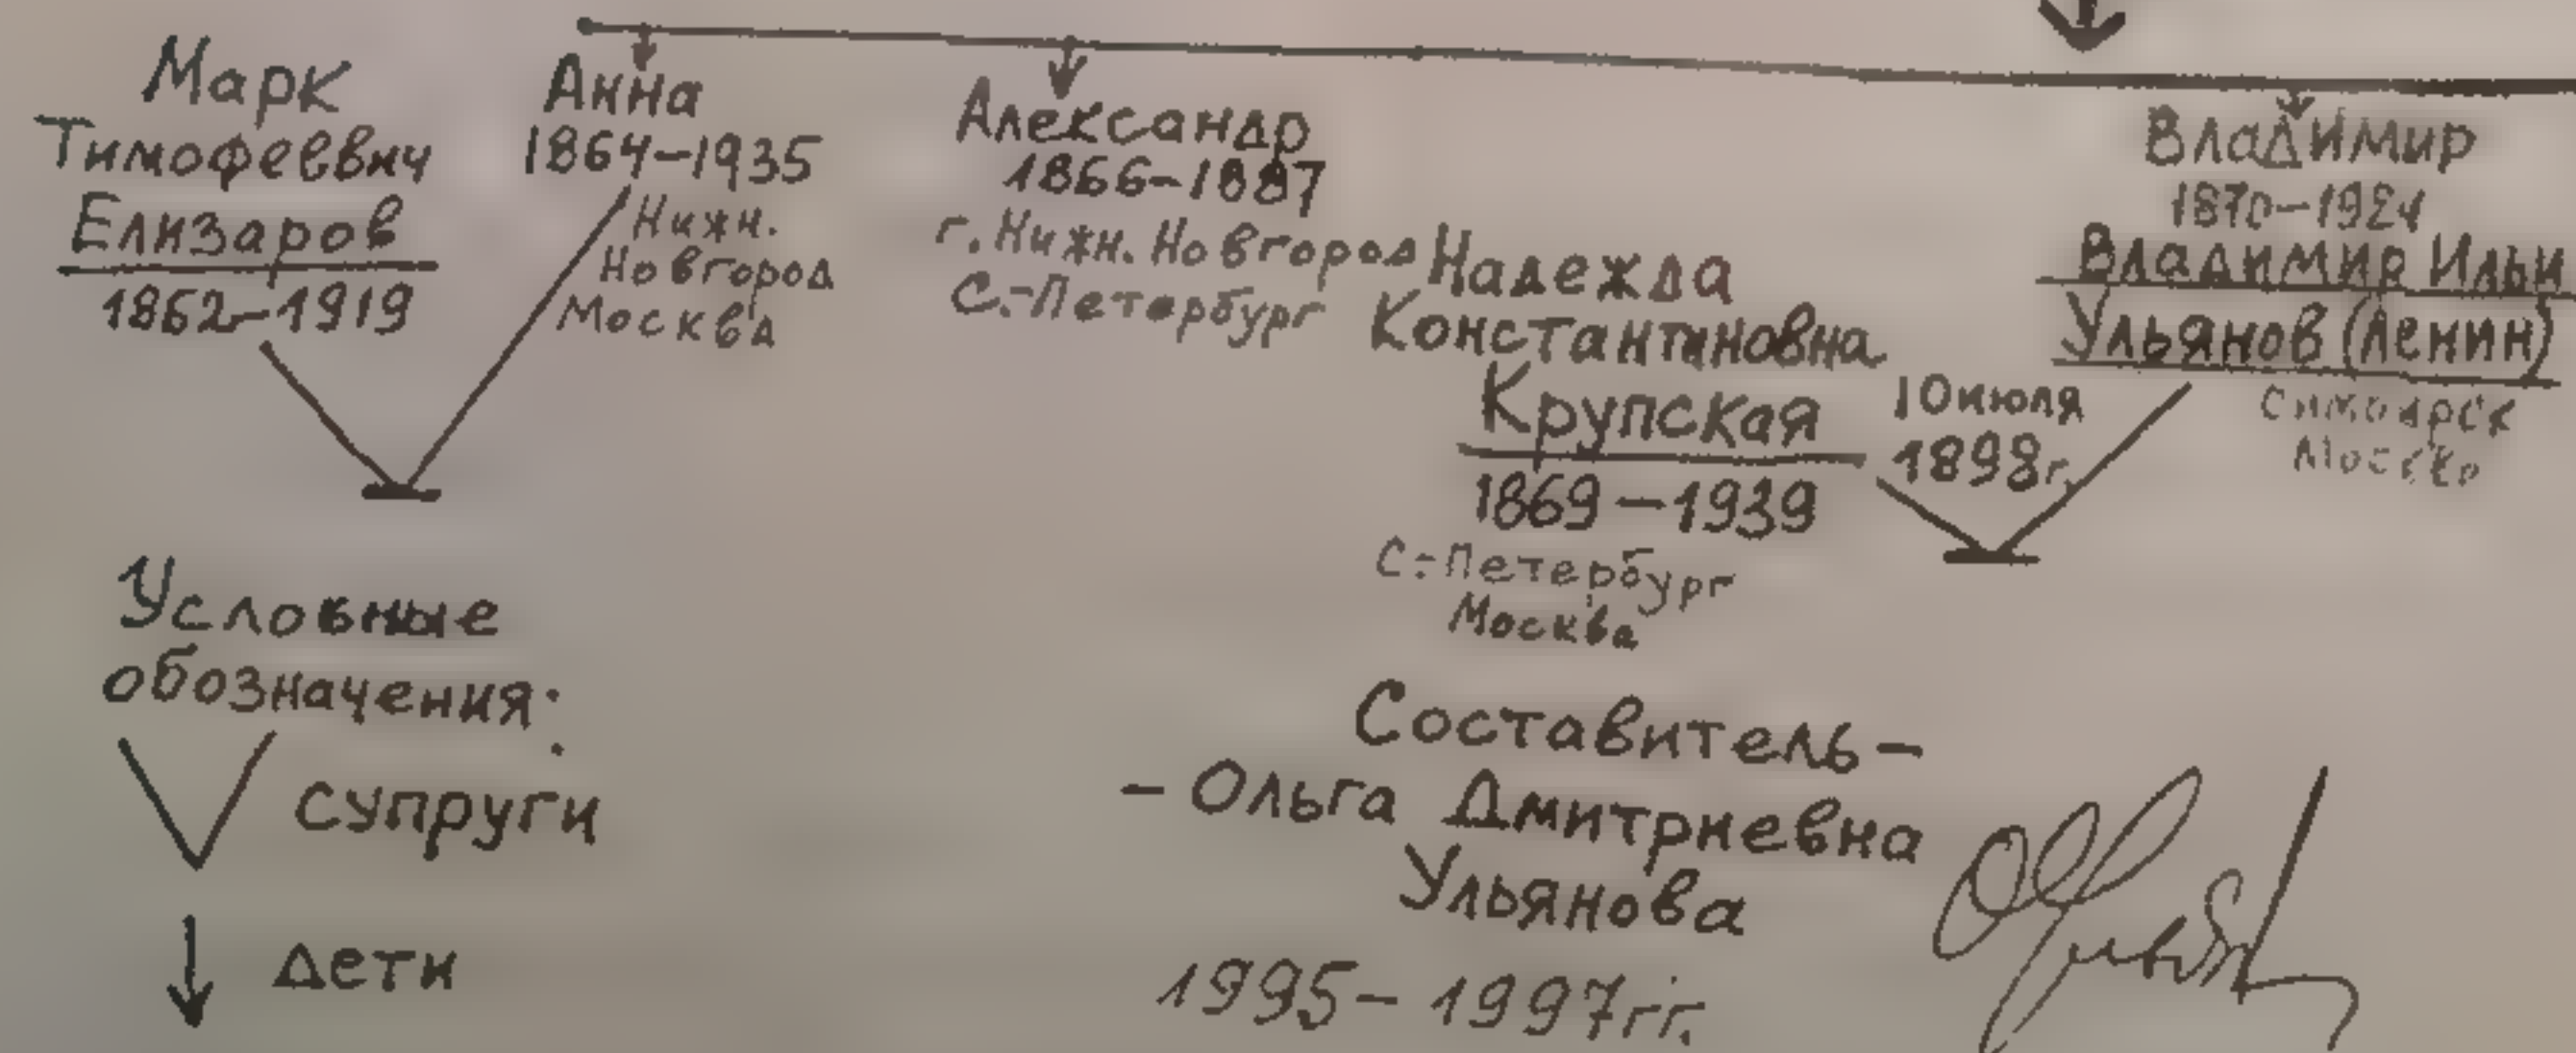 Марк
Тимофеевич
Елизаров
1862-1919
Анна
1864-1935
Нижн.
Новгород
Москва
Александр
1866-1887
г. Нижн. Новгород
С.-Петербург
Надежда
Константиновна
Крупская
1869-1939
С.-Петербург
Москва
10 июля
1898г.
Владимир
1870-1924
Владимир Ильи
Ульянов (Ленин)
Симбирск
Москва
Условные
обозначения:
супруги
дети
Составитель-
- Ольга Дмитриевна
Ульянова
1995-1997гг.